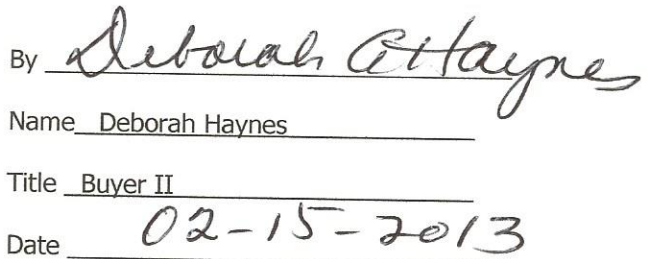 By Deborah A Haynes
Name Deborah Haynes
Title Buyer II
Date 02-15-2013